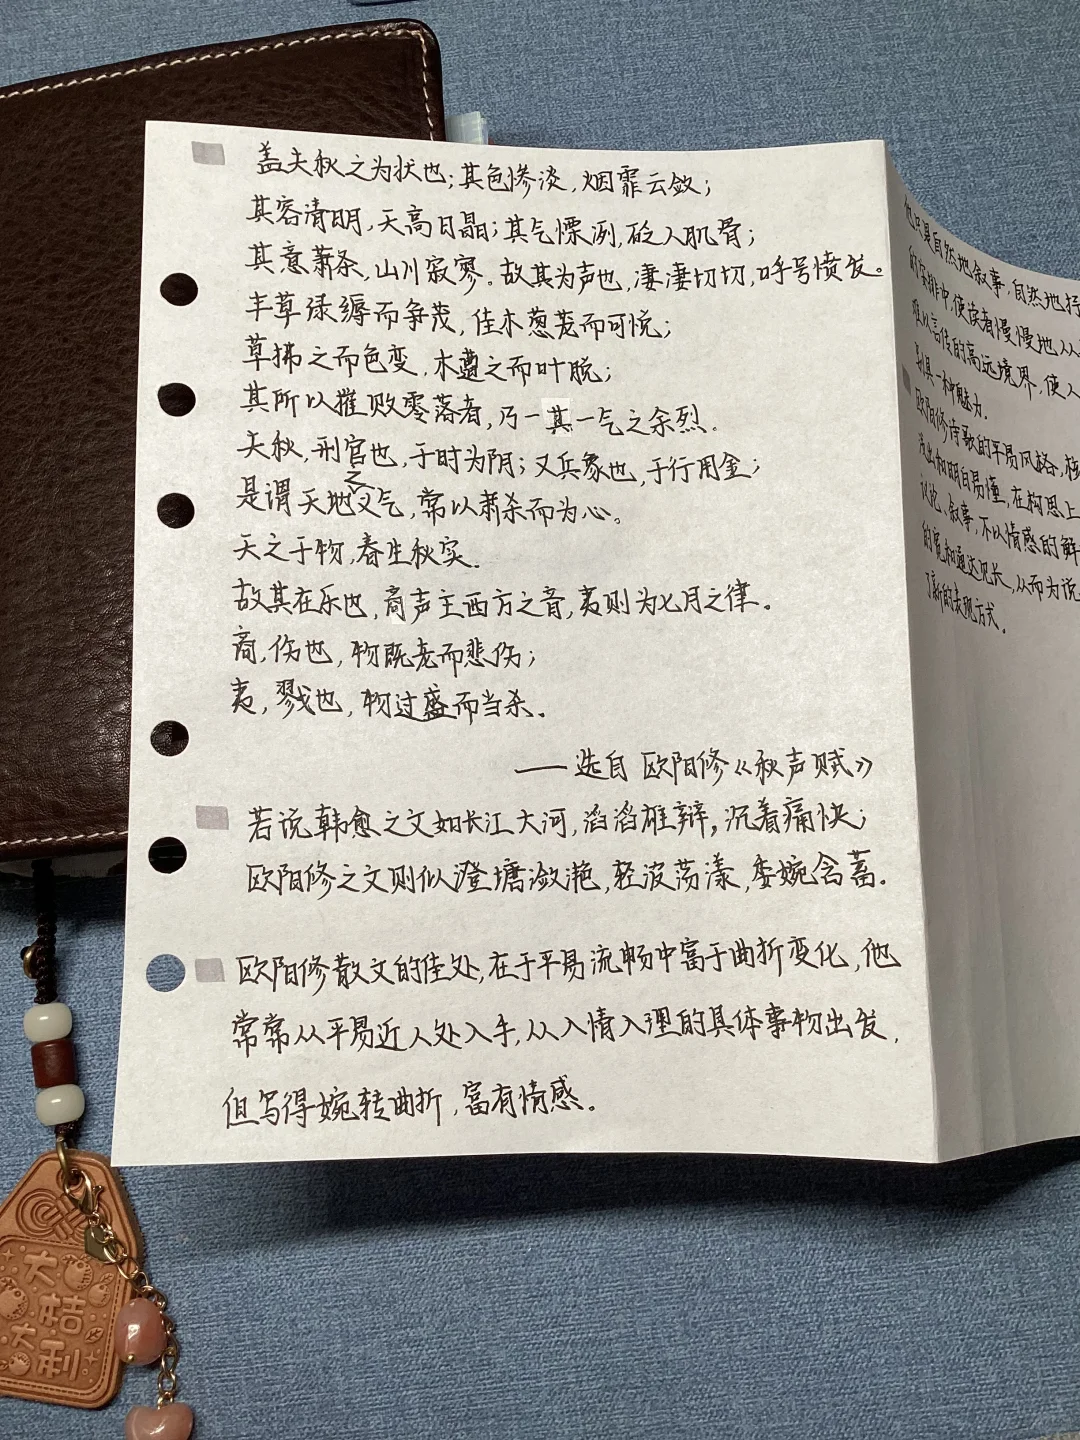 盖夫秋之为状也；其色惨淡，烟霏云敛；
其容清明，天高日晶；其气慄冽，砭人肌骨；
其意萧条，山川寂寥。故其为声也，凄凄切切，呼号愤发。
丰草绿缛而争茂，佳木葱茏而可悦；
草拂之而色变，木遭之而叶脱；
其所以摧败零落者，乃一其一气之余烈。
夫秋，刑官也，于时为阴；又兵象也，于行用金；
是谓天地之义气，常以肃杀而为心。
天之于物，春生秋实.
故其在乐也，商声主西方之音，夷则为七月之律。
商，伤也，物既老而悲伤；
夷，戮也，物过盛而当杀.
——选自 欧阳修《秋声赋》
若说韩愈之文如长江大河，滔滔雄辩，沉着痛快；
欧阳修之文则似澄塘潋滟，轻波荡漾，委婉含蓄.
欧阳修散文的佳处，在于平易流畅中富于曲折变化，他
常常从平易近人处入手，从入情入理的具体事物出发，
但写得婉转曲折，富有情感。
他只是自然地叙事，自然地抒
的安排中，使读者慢慢地从
难以言传的高远境界，使人
别具一种魅力.
欧阳修诗歌的平易风格，核
浅出和明白易懂，在构思上
议论、叙事，不以情感的鲜
的宽和通达见长，从而为说
了新的表现方式.
大桔
大利